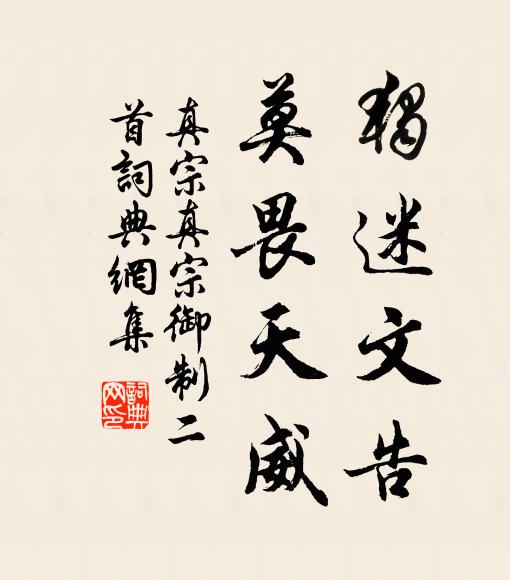 獨迷文告
莫畏天威
真宗真宗御制二
首詞典網集
詞典網印